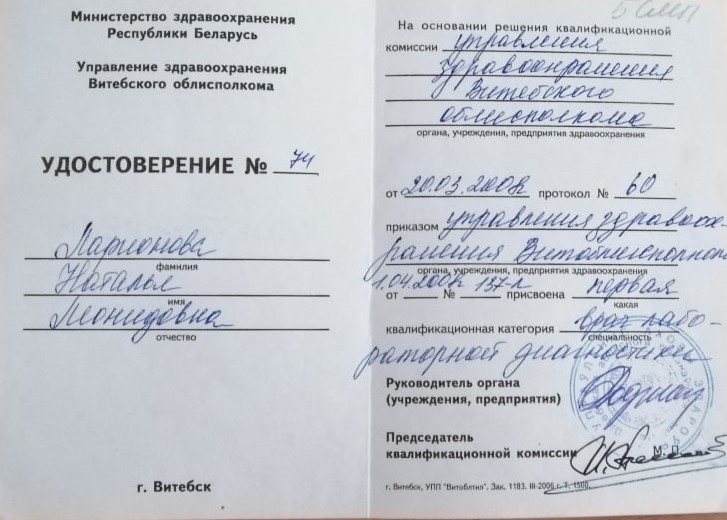 Министерство здравоохранения
Республики Беларусь
Управление здравоохранения
Витебского облисполкома
УДОСТОВЕРЕНИЕ № 74
Ларионова
фамилия
Наталья
имя
Леонидовна
отчество
г. Витебск
5 СМП
На основании решения квалификационной
комиссии управления
здравоохранения
Витебского
облисполкома
органа, учреждения, предприятия здравоохранения
от 20.03.2008 протокол № 60
приказом управления здравоох-
ранения Витоблисполкома
органа, учреждения, предприятия здравоохранения
от 1.04.2008 № 137-л присвоена первая
какая
квалификационная категория врач лабо-
специальность
раторной диагностики
Руководитель органа
(учреждения, предприятия)
Председатель
квалификационной комиссии
М. П.
г. Витебск, УПП "Витоблтип". Зак. 1183. III-2006 г. Т. 1500.